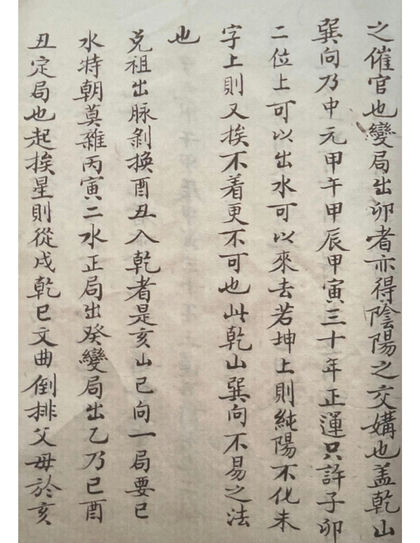 之催官也變局出卯者亦得陰陽之交媾也盖乾山
巽向乃中元甲午甲辰甲寅三十年正運只許子卯
二位上可以出水可以來去若坤上則純陽不化未
字上則又挨不着更不可也此乾山巽向不易之法
也
兑祖出脉剝換酉丑入乾者是亥山巳向一局要巳
水特朝莫雜丙寅二水正局出癸變局出乙乃巳酉
丑定局也起挨星則從戌乾巳文曲倒排父母於亥